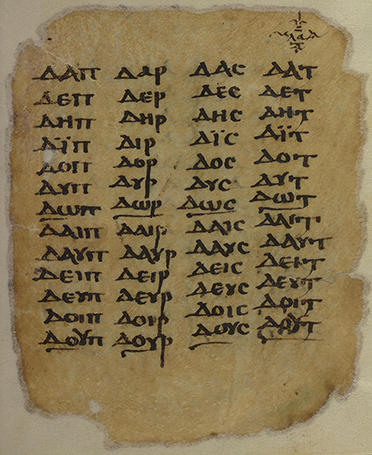 ⲆⲀⲠ ⲆⲀⲢ ⲆⲀⲤ ⲆⲀⲦ
ⲆⲈⲠ ⲆⲈⲢ ⲆⲈⲤ ⲆⲈⲦ
ⲆⲎⲠ ⲆⲎⲢ ⲆⲎⲤ ⲆⲎⲦ
ⲆⲒ̈Ⲡ ⲆⲒⲢ ⲆⲒ̈Ⲥ ⲆⲒ̈Ⲧ
ⲆⲞⲠ ⲆⲞⲢ ⲆⲞⲤ ⲆⲞⲦ
ⲆⲨⲠ ⲆⲨⲢ ⲆⲨⲤ ⲆⲨⲦ
ⲆⲰⲠ ⲆⲰⲢ ⲆⲰⲤ ⲆⲰⲦ
ⲆⲀⲒⲠ ⲆⲀⲒⲢ ⲆⲀⲒⲤ ⲆⲀⲒⲦ
ⲆⲀⲨⲠ ⲆⲀⲨⲢ ⲆⲀⲨⲤ ⲆⲀⲨⲦ
ⲆⲈⲒⲠ ⲆⲈⲒⲢ ⲆⲈⲒⲤ ⲆⲈⲒⲦ
ⲆⲈⲨⲠ ⲆⲈⲨⲢ ⲆⲈⲨⲤ ⲆⲈⲨⲦ
ⲆⲞⲒⲠ ⲆⲞⲒⲢ ⲆⲞⲒⲤ ⲆⲞⲒⲦ
ⲆⲞⲨⲠ ⲆⲞⲨⲢ ⲆⲞⲨⲤ ⲆⲞⲨⲦ